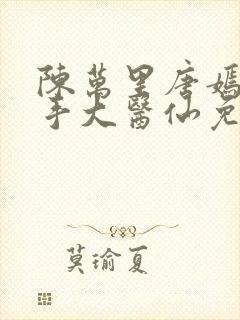 陳萬里唐嫣
手大醫仙免
莫瑜夏